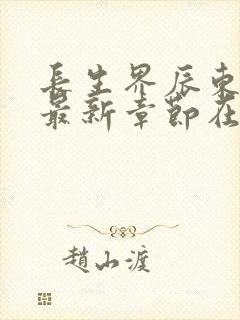 長生界辰東
最新章節在
趙山渡